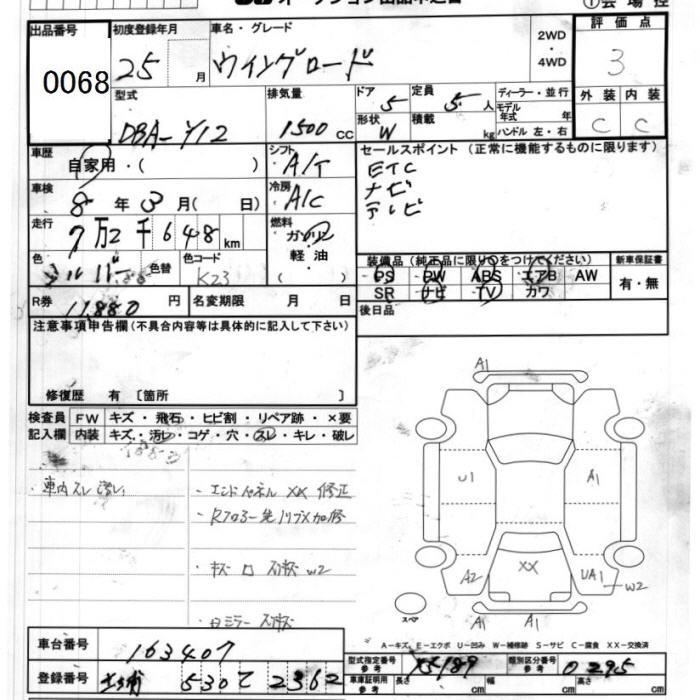 出品番号
0068
初度登録年月
25 月
車名・グレード
ウイングロード
2WD
・
4WD
評価点
3
型式
DBA-Y12
排気量
1500 CC
ドア
5
定員
5 人
形状
W
積載
kg
ディーラー・並行
モデル年式 年
ハンドル 左・右
外装 内装
C C
車歴
自家用・( )
シフト
A/T
セールスポイント (正常に機能するものに限ります)
ETC
ナビ
テレビ
車検
8 年 3 月( 日)
冷房
A/C
走行
7万2千648 km
燃料
ガソリン
軽・油
色
シルバー
色替
色コード
K23
装備品 (純正品に限り○をつけてください)
PS PW ABS エアB AW
SR ナビ TV カワ
新車保証書
有・無
R券
11,880 円
名変期限 月 日
後日品
注意事項申告欄(不具合内容等は具体的に記入して下さい)
修復歴 有〔箇所 〕
検査員
記入欄
FW キズ・飛石・ヒビ割・リペア跡・×要
内装 キズ・汚レ・コゲ・穴・スレ・キレ・破レ
・車内スレ汚レ
・エンドパネル XX 修正
W2
A1
U1
A1
A2
XX
UA1
W2
A1
A1
スペア
A-キズ E-エクボ U-凹み W-補修跡 S-サビ C-腐食 XX-交換済
車台番号
163407
登録番号
530 て 2362
型式指定番号
参考
15189
類別区分番号
参考
0295
車庫証明用
参考
長さ cm
幅 cm
高さ cm